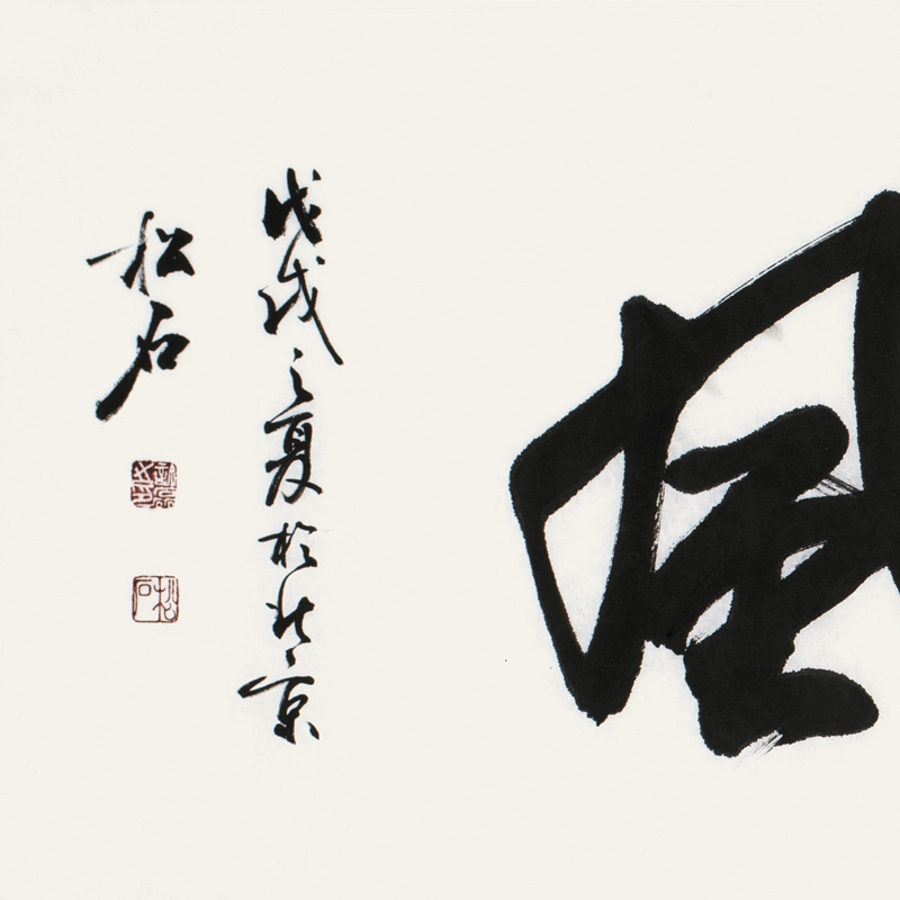 風
戊戌之夏於北京
松石
松石